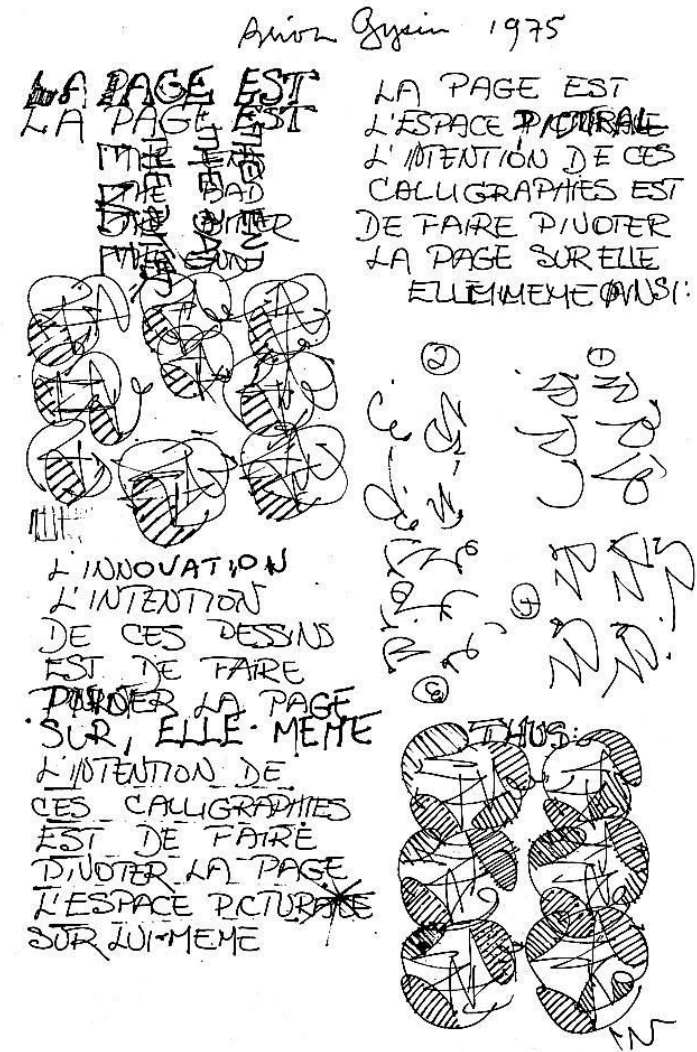 Brion Gysin 1975
LA PAGE EST
LA PAGE EST
THE
THE BAD
THE
THE
L'INNOVATION
L'INTENTION
DE CES DESSINS
EST DE FAIRE
LA PAGE
SUR, ELLE-MEME
L'INTENTION DE
CES CALLIGRAPHIES
EST DE FAIRE
PIVOTER LA PAGE
L'ESPACE PICTURALE
SUR LUI-MEME
LA PAGE EST
L'ESPACE PICTURALE
L'INTENTION DE CES
CALLIGRAPHIES EST
DE FAIRE PIVOTER
LA PAGE SUR ELLE
ELLE MEME AINSI:
1
2
3
4
THUS: